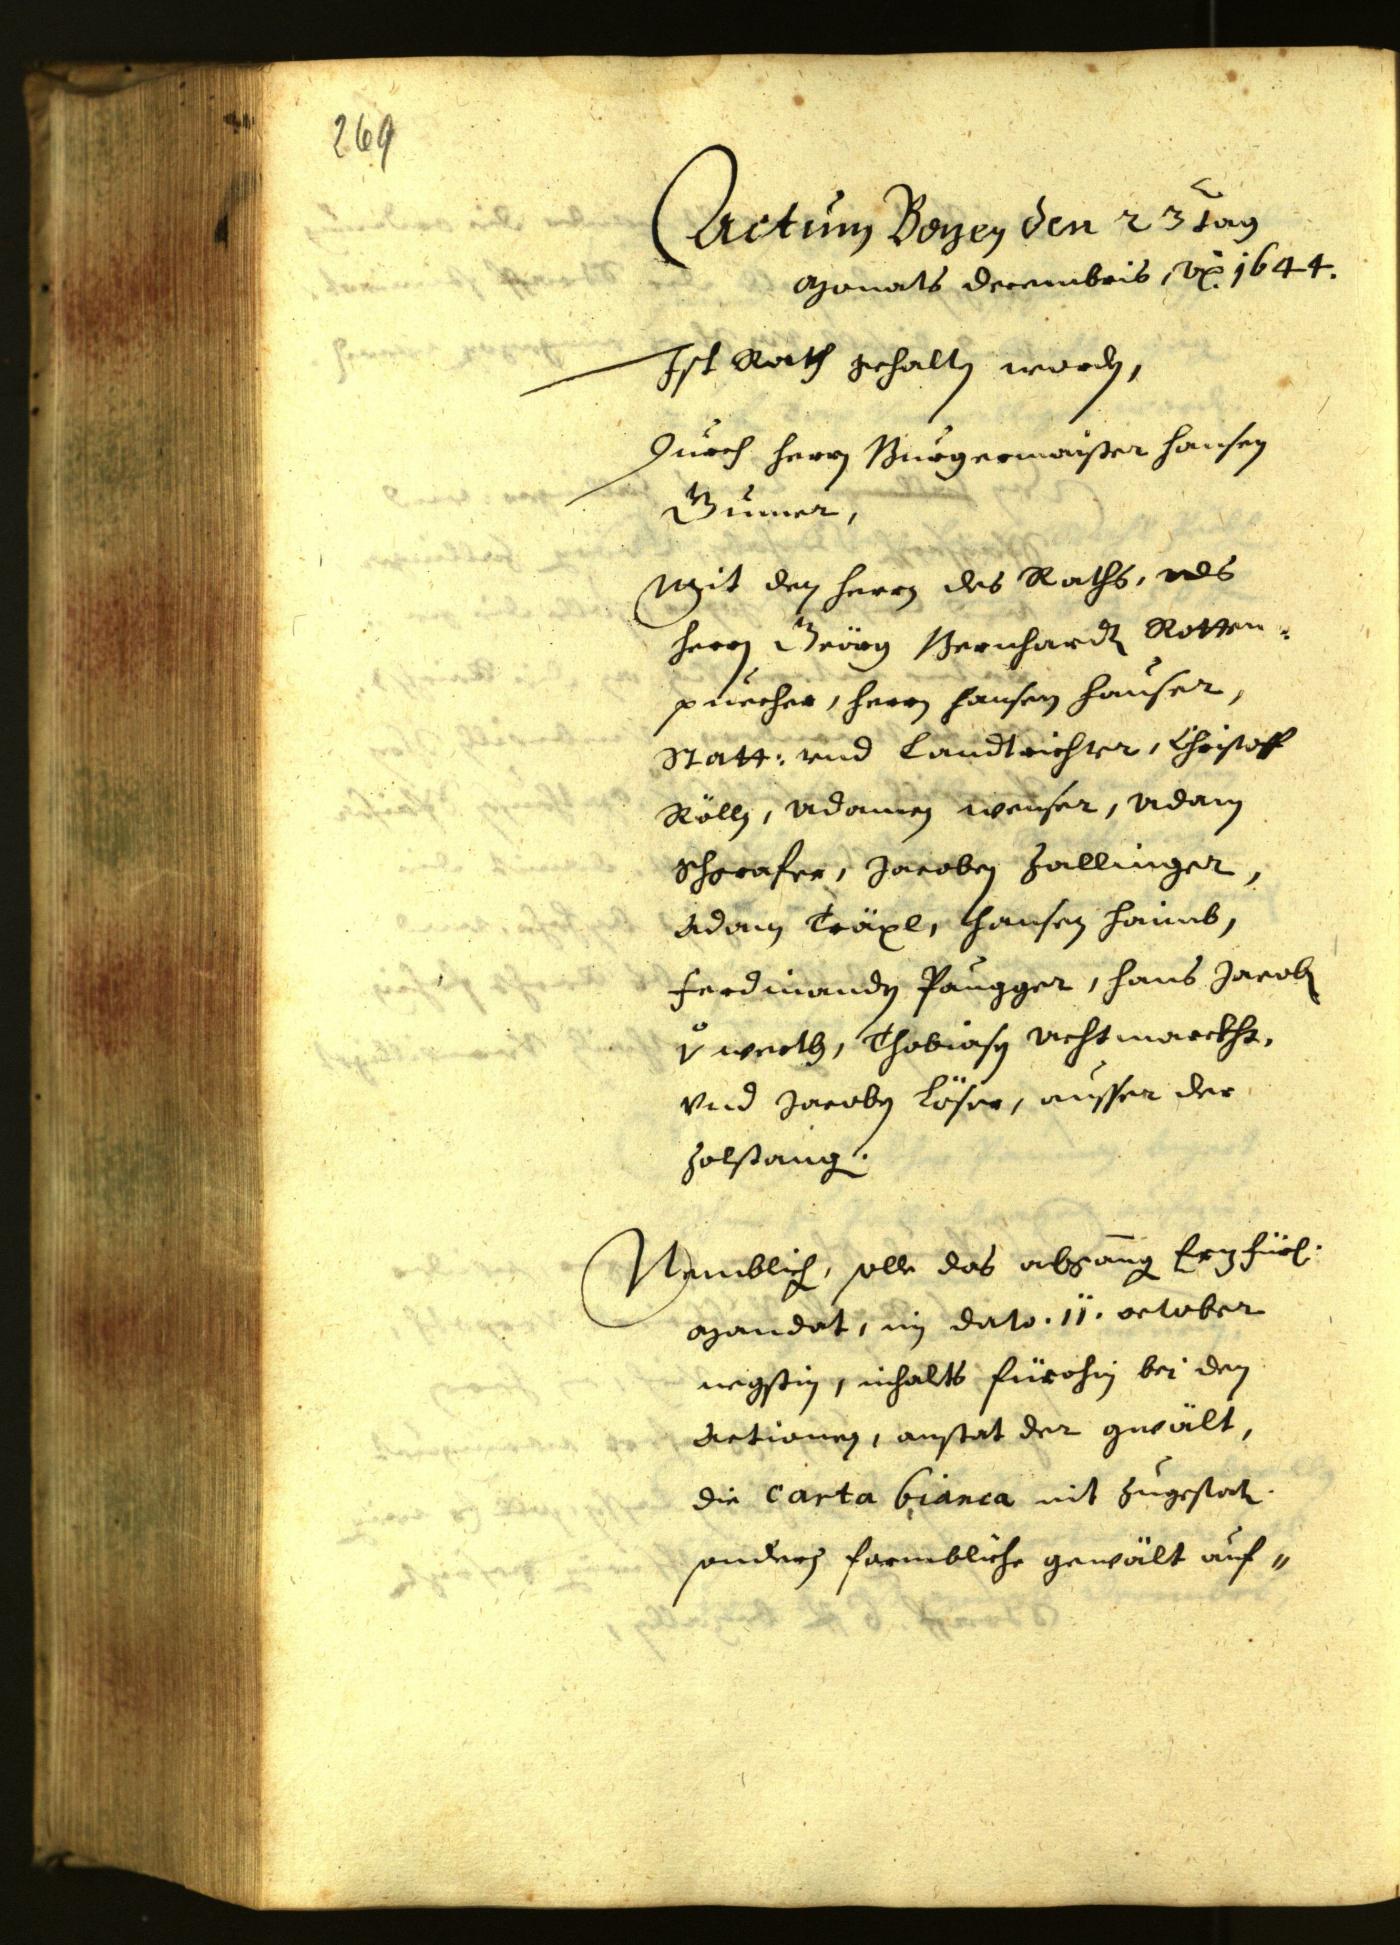 269
Actum Bozen den 23 Tag
Monats decembris, 1644.
Ist Rath gehalten worden,
Durch herrn Burgermaister Hansen
Gumer,
Mit den herrn des Raths, als
herrn Geörg Bernhardt Rotten-
puecher, herrn Hansen Hauser,
Statt- und Landtrichter, Christoff
Röll, Adamen Wenser, Adam
Schgrafer, Jacoben Zallinger,
Adam Träxl, Hansen Haimb,
Ferdinanden Paugger, Hans Jacob
V werth, Thobiasen Achtmarckht,
und Jacoben Löser, ausser der
Zolstang.
Nemblich, solle das abgang Erzfürl:
Mandat, in dato 11. october
negsthin, inhalts fürohin bei den
Actionen, anstat der gwält,
die Carta bianca nit zugestat
sondern formbliche gewält auf"